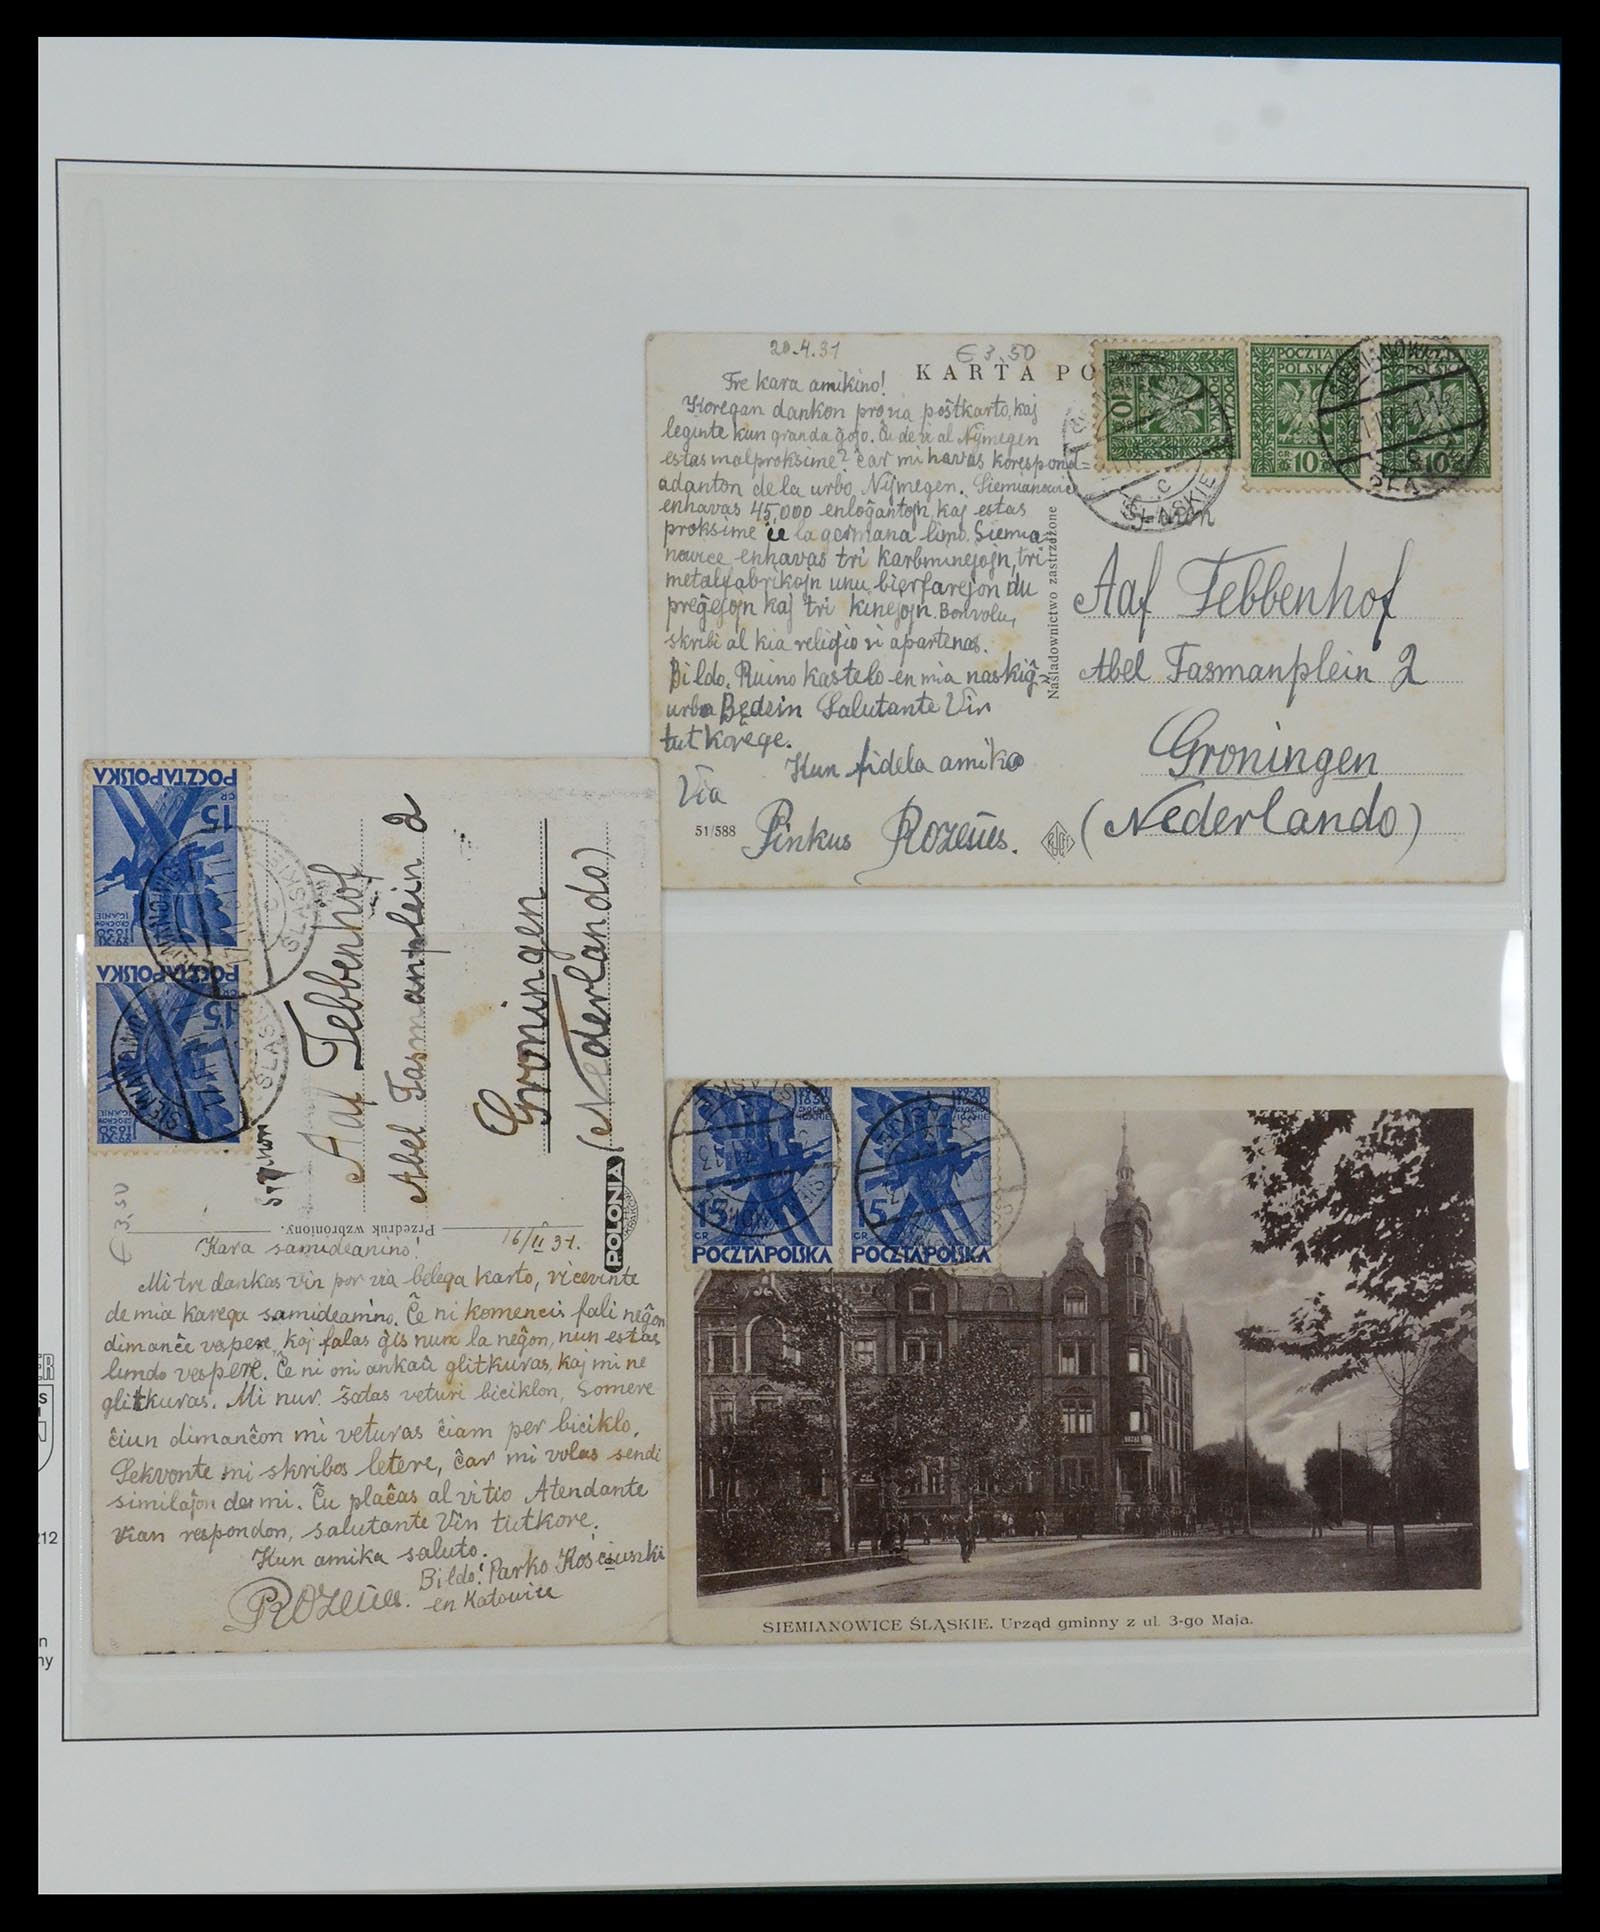 20.4.31
€ 3.50
KARTA PO
Tre kara amikino!
Koregan dankon pro via poŝtkarto, kaj
leginte kun granda ĝojo. Ĉu de vi al Nijmegen
estas malproksime? ĉar mi havas korespond=
adanton de la urbo Nijmegen. Siemianowice
enhavas 45,000 enloĝantojn, kaj estas
proksime ĉe la germana limo. Siemia
nowice enhavas tri karbminejojn, tri
metalfabrikojn unu bierfarejon du
preĝejojn kaj tri kinejojn. Bonvolu,
skribi al kia religio vi apartenas.
Bildo. Ruino kastelo en mia naskiĝ-
urbo Będzin Salutante Vin
tutkorege.
Kun fidela amiko
Via
51/588
Pinkus Rozeŭes.
Naśladownictwo zastrzeżone
Aaf Tebbenhof
Abel Tasmanplein 2
Groningen
(Nederlando)
POCZTA POLSKA
GR 10
POCZTA POLSKA
10
POCZTA POLSKA
10
SIEMIANOWICE
ŚLĄSKIE
c
POCZTA POLSKA
15
GR
POCZTA POLSKA
15
SIEMIANOWICE
ŚLĄSKIE
Aaf Tebbenhof
Abel Tasmanplein 2
Groningen
(Nederlando)
POLONIA
KRAKÓW
Przedruk wzbroniony.
€ 3,50
16/II 31.
Kara samideanino!
Mi tre dankas vin por via belega karto, ricevinte
de mia karega samideanino. Ĉe ni komencis fali neĝon
dimanĉe vapere, kaj falas ĝis nun la neĝon, nun estas
lundo vespere. Ĉe ni oni ankaŭ glitkuras, kaj mi ne
glitkuras. Mi nur ŝatas veturi biciklon, Somere
ĉiun dimanĉon mi veturas ĉiam per biciklo.
Sekvonte mi skribos letere, ĉar mi volas sendi
similaĵon de mi. Ĉu plaĉas al vi tio Atendante
vian respondon, salutante Vin tutkore.
Kun amika saluto.
Bildo: Parko Kościuszki
en Katowice
Rozeŭes.
15
GR
POCZTA POLSKA
15
GR
POCZTA POLSKA
SIEMIANOWICE ŚLĄSKIE. Urząd gminny z ul. 3-go Maja.
212